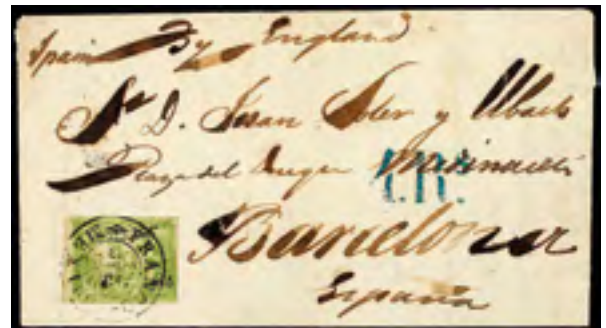 Spain By England
Sr D. Juan Soler y Ubach
Plaza del Duque Medinaceli
4.R.
Barcelona
España